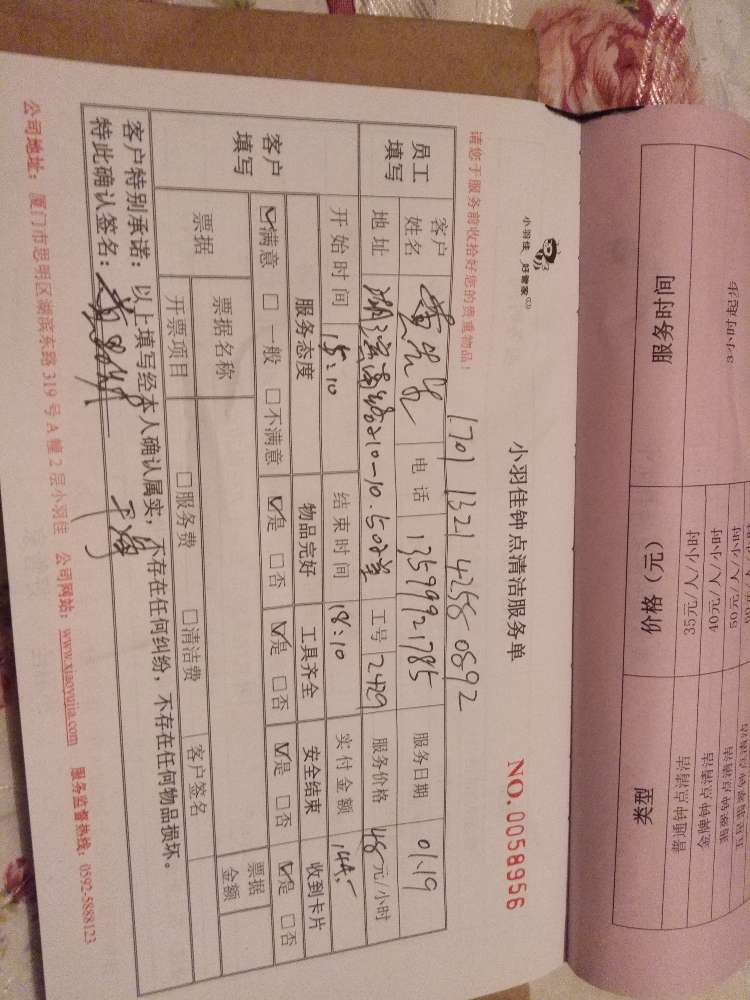 服务时间
价格（元）
类型
3小时起步
35元/人/小时
普通钟点清洁
40元/人/小时
金牌钟点清洁
50元/人/小时
小羽佳 好管家
小羽佳钟点清洁服务单
NO.0058956
1701 1321 4258 0892
请您于服务前收拾好您的贵重物品！
员工填写
客户姓名
电话 13599921785
服务日期 01.19
地址
工号 2429
服务价格 48元/小时
客户填写
开始时间 15:10
结束时间 18:10
实付金额 144.-
服务态度
物品完好
工具齐全
安全结束
收到卡片
☑满意 □一般 □不满意
☑是 □否
☑是 □否
☑是 □否
☑是 □否
票据
票据名称
客户签名
票据金额
开票项目
□服务费 □清洁费
客户特别承诺：以上填写经本人确认属实，不存在任何纠纷，不存在任何物品损坏。
特此确认签名：
公司地址：厦门市思明区湖滨东路319号A幢2层小羽佳 公司网站：www.xiaoyujia.com 服务监督热线：0592-5888123